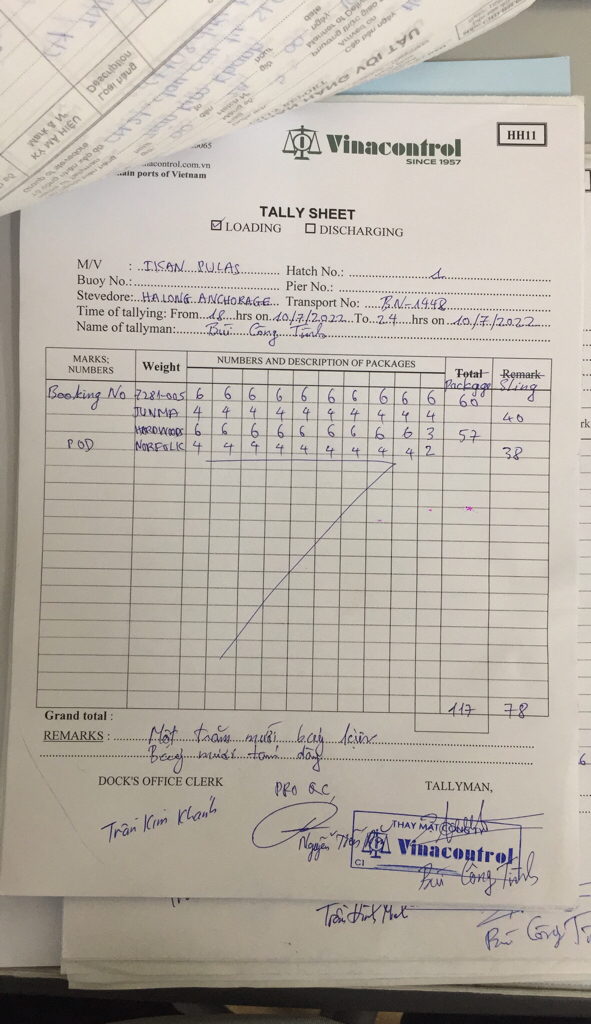 Description
Loại hàng
Mark & Nº
KÝ MÃ HIỆU
HH11
Vinacontrol
SINCE 1957
0065
nacontrol.com.vn
ain ports of Vietnam
TALLY SHEET
☑ LOADING ☐ DISCHARGING
M/V : IKAN PULAS Hatch No.: 1
Buoy No.: Pier No.:
Stevedore: HALONG ANCHORAGE Transport No: BN-1448
Time of tallying: From 18 hrs on 10/7/2022 To 24 hrs on 10/7/2022
Name of tallyman: Bùi Công Tĩnh
MARKS; NUMBERS Weight NUMBERS AND DESCRIPTION OF PACKAGES Total Remark
Package Sling
Booking No 7281-005 6 6 6 6 6 6 6 6 6 6 60
JUNMA 4 4 4 4 4 4 4 4 4 4 40
HARDWOODS 6 6 6 6 6 6 6 6 6 3 57
POD NORFOLK 4 4 4 4 4 4 4 4 4 2 38
117 78
Grand total :
REMARKS : Một trăm mười bảy kiện
Bảy mươi tám dây
DOCK'S OFFICE CLERK PRO QC, TALLYMAN,
Trần Kim Khánh
Nguyễn
THAY MẶT CÔNG TY
Vinacontrol
C1
Bùi Công Tĩnh
Bùi Công